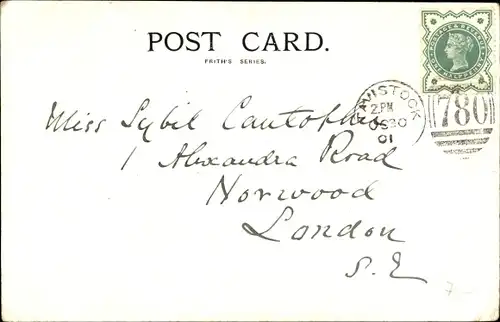 POST CARD.
FRITH'S SERIES.
POSTAGE & REVENUE
HALFPENNY
TAVISTOCK
2 PM
30
01
780
Miss Sybil
1 Alexandra Road
Norwood
London
S. E